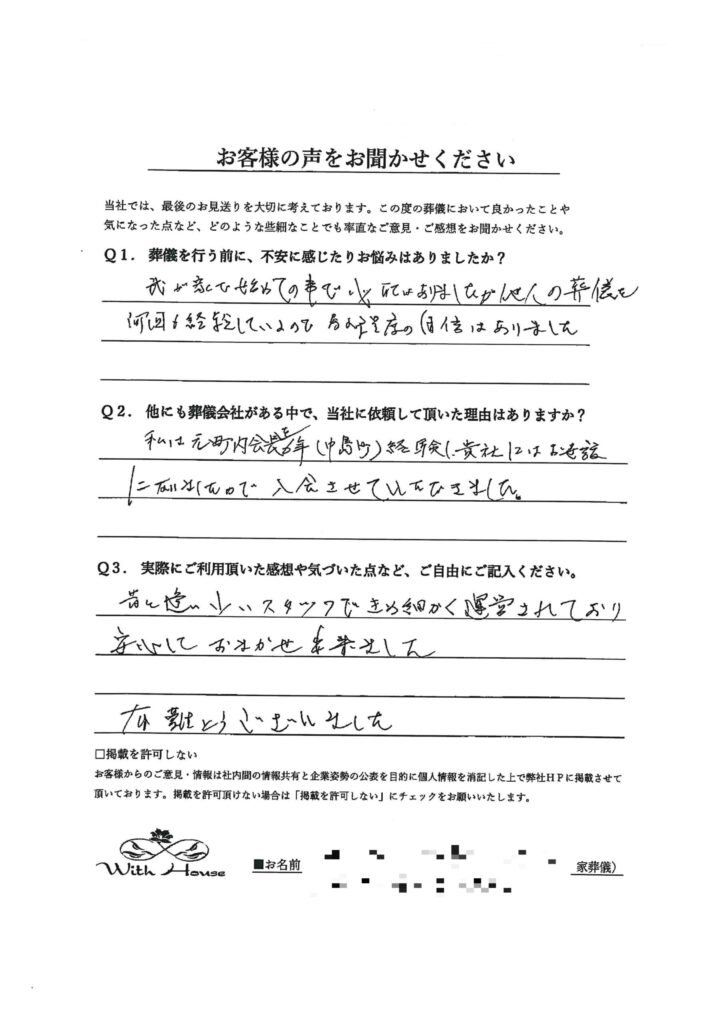 お客様の声をお聞かせください
当社では、最後のお見送りを大切に考えております。この度の葬儀において良かったことや
気になった点など、どのような些細なことでも率直なご意見・ご感想をお聞かせください。
Q1．葬儀を行う前に、不安に感じたりお悩みはありましたか？
我が家で始めての事で心配はありましたが他人の葬儀を
何回も経験しているので ある程度の自信はありました
Q2．他にも葬儀会社がある中で、当社に依頼して頂いた理由はありますか？
私は元町内会長を 年(中島町)経験し、貴社にはお世話
になりましたので 入会させていただきました。
Q3．実際にご利用頂いた感想や気づいた点など、ご自由にご記入ください。
昔と違い少いスタッフできめ細かく運営されており
安心して おまかせ出来ました
有難とうございました
□掲載を許可しない
お客様からのご意見・情報は社内間の情報共有と企業姿勢の公表を目的に個人情報を消記した上で弊社HPに掲載させて
頂いております。掲載を許可頂けない場合は「掲載を許可しない」にチェックをお願いいたします。
With House
■お名前
家葬儀）